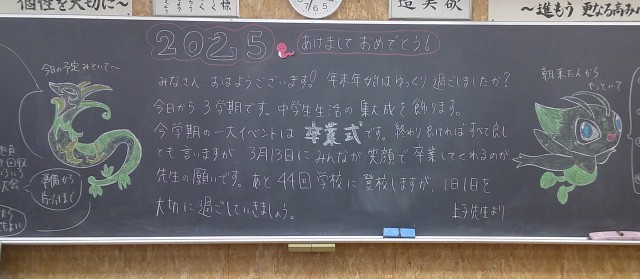 個性を大切に～
くく様
7/65
進美歓
～進もう 更なる高み
2025
あけまして おめでとう!
今日の予定みといて～
みなさん、おはようございます! 年末年始はゆっくり過ごしましたか?
今日から3学期です。中学生生活の集大成を飾ります。
今学期の一大イベントは 卒業式 です。終わり良ければすべて良し
とも言いますが、3月13日にみんなが笑顔で卒業してくれるのが
先生の願いです。あと44回学校に登校しますが、1日1日を
大切に過ごしていきましょう。
上子先生より
朝来たんから
やっといて
回収
大会
準備から
片づけまで